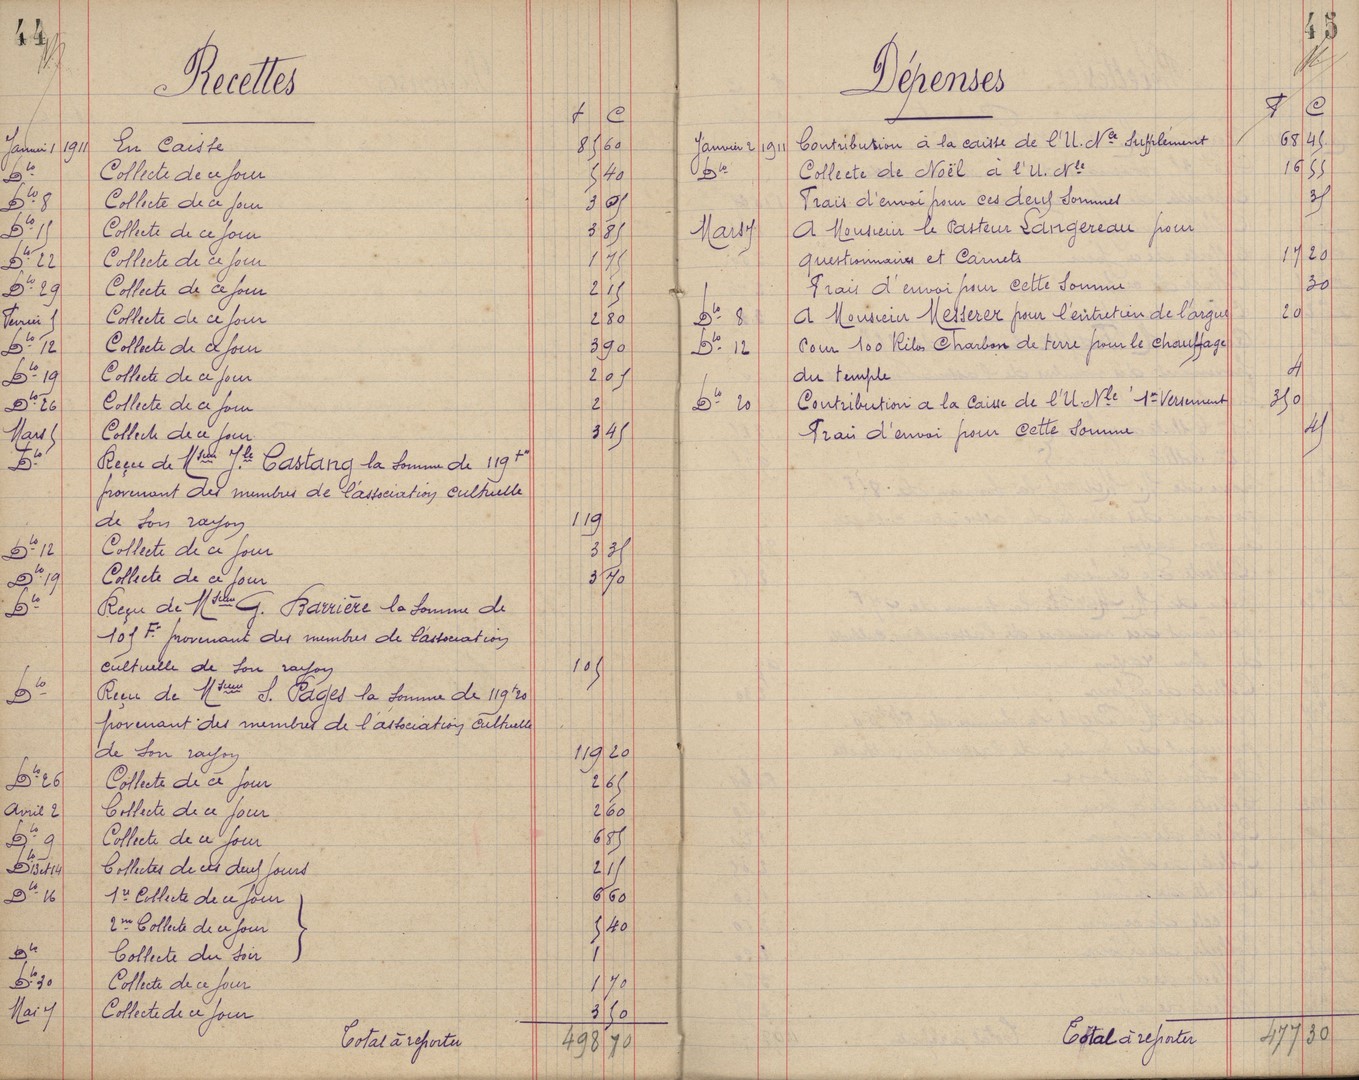 44
Recettes
f C
Janvier 1 1911 En Caisse 85 60
Dto Collecte de ce Jour 5 40
Dto 8 Collecte de ce Jour 3 05
Dto 15 Collecte de ce Jour 3 85
Dto 22 Collecte de ce Jour 1 75
Dto 29 Collecte de ce Jour 2 15
Fevrier 5 Collecte de ce Jour 2 80
Dto 12 Collecte de ce Jour 3 90
Dto 19 Collecte de ce Jour 2 05
Dto 26 Collecte de ce Jour 2
Mars 5 Collecte de ce Jour 3 45
Dto Reçu de Msieur Jle Castang la Somme de 119 frs
provenant des membres de l'association cultuelle
de Son rayon 119
Dto 12 Collecte de ce Jour 3 35
Dto 19 Collecte de ce Jour 3 70
Dto Reçu de Msieur G. Barrière la Somme de
105 Fr provenant des membres de l'association
cultuelle de Son rayon 105
Dto Reçu de Msieur S. Pagès la Somme de 119f20
provenant des membres de l'association cultuelle
de Son rayon 119 20
Dto 26 Collecte de ce Jour 2 65
Avril 2 Collecte de ce Jour 2 60
Dto 9 Collecte de ce Jour 6 85
Dto 13et14 Collectes de ces deux Jours 2 15
Dto 16 1re Collecte de ce Jour 6 60
2me Collecte de ce Jour 5 40
Dto Collecte du Soir 1
Dto 30 Collecte de ce Jour 1 70
Mai 7 Collecte de ce Jour 3 50
Total à reporter 498 70
45
Dépenses
F C
Janvier 2 1911 Contribution à la caisse de l'U. Nle Supplément 68 45
Dto Collecte de Noël à l'U. Nle 16 55
Frais d'envoi pour ces deux Sommes 35
Mars 7 A Monsieur le Pasteur Langereau pour
questionnaires et Carnets 17 20
Frais d'envoi pour cette Somme 30
Dto 8 A Monsieur Messerer pour l'entretien de l'orgue 20
Dto 12 Pour 100 Kilos Charbon de terre pour le chauffage
du temple 4
Dto 20 Contribution a la Caisse de l'U. Nle 1er Versement 350
Frais d'envoi pour cette Somme 45
Total à reporter 477 30